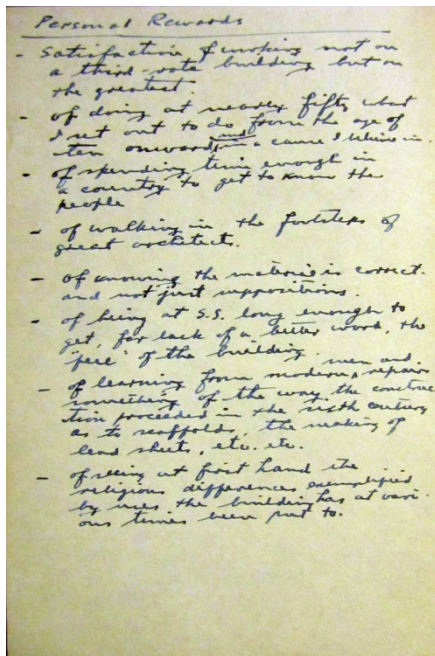 Personal Rewards
- Satisfaction of working not on
a third rate building but on
the greatest.
- of doing at nearly fifty what
I set out to do from the age of
ten onward, and in a cause I believe in.
- of spending time enough in
a country to get to know the
people
- of walking in the footsteps of
great architects.
- of knowing the material is correct
and not just suppositions.
- of being at S.S. long enough to
get, for lack of a better word, the
"feel" of the building.
- of learning from modern men and repairs
something of the way the construc
tion proceeded in the sixth century
as to scaffolds, the making of
lead sheets, etc. etc.
- of seeing at first hand the
religious differences exemplified
by uses the building has at vari
ous times been put to.